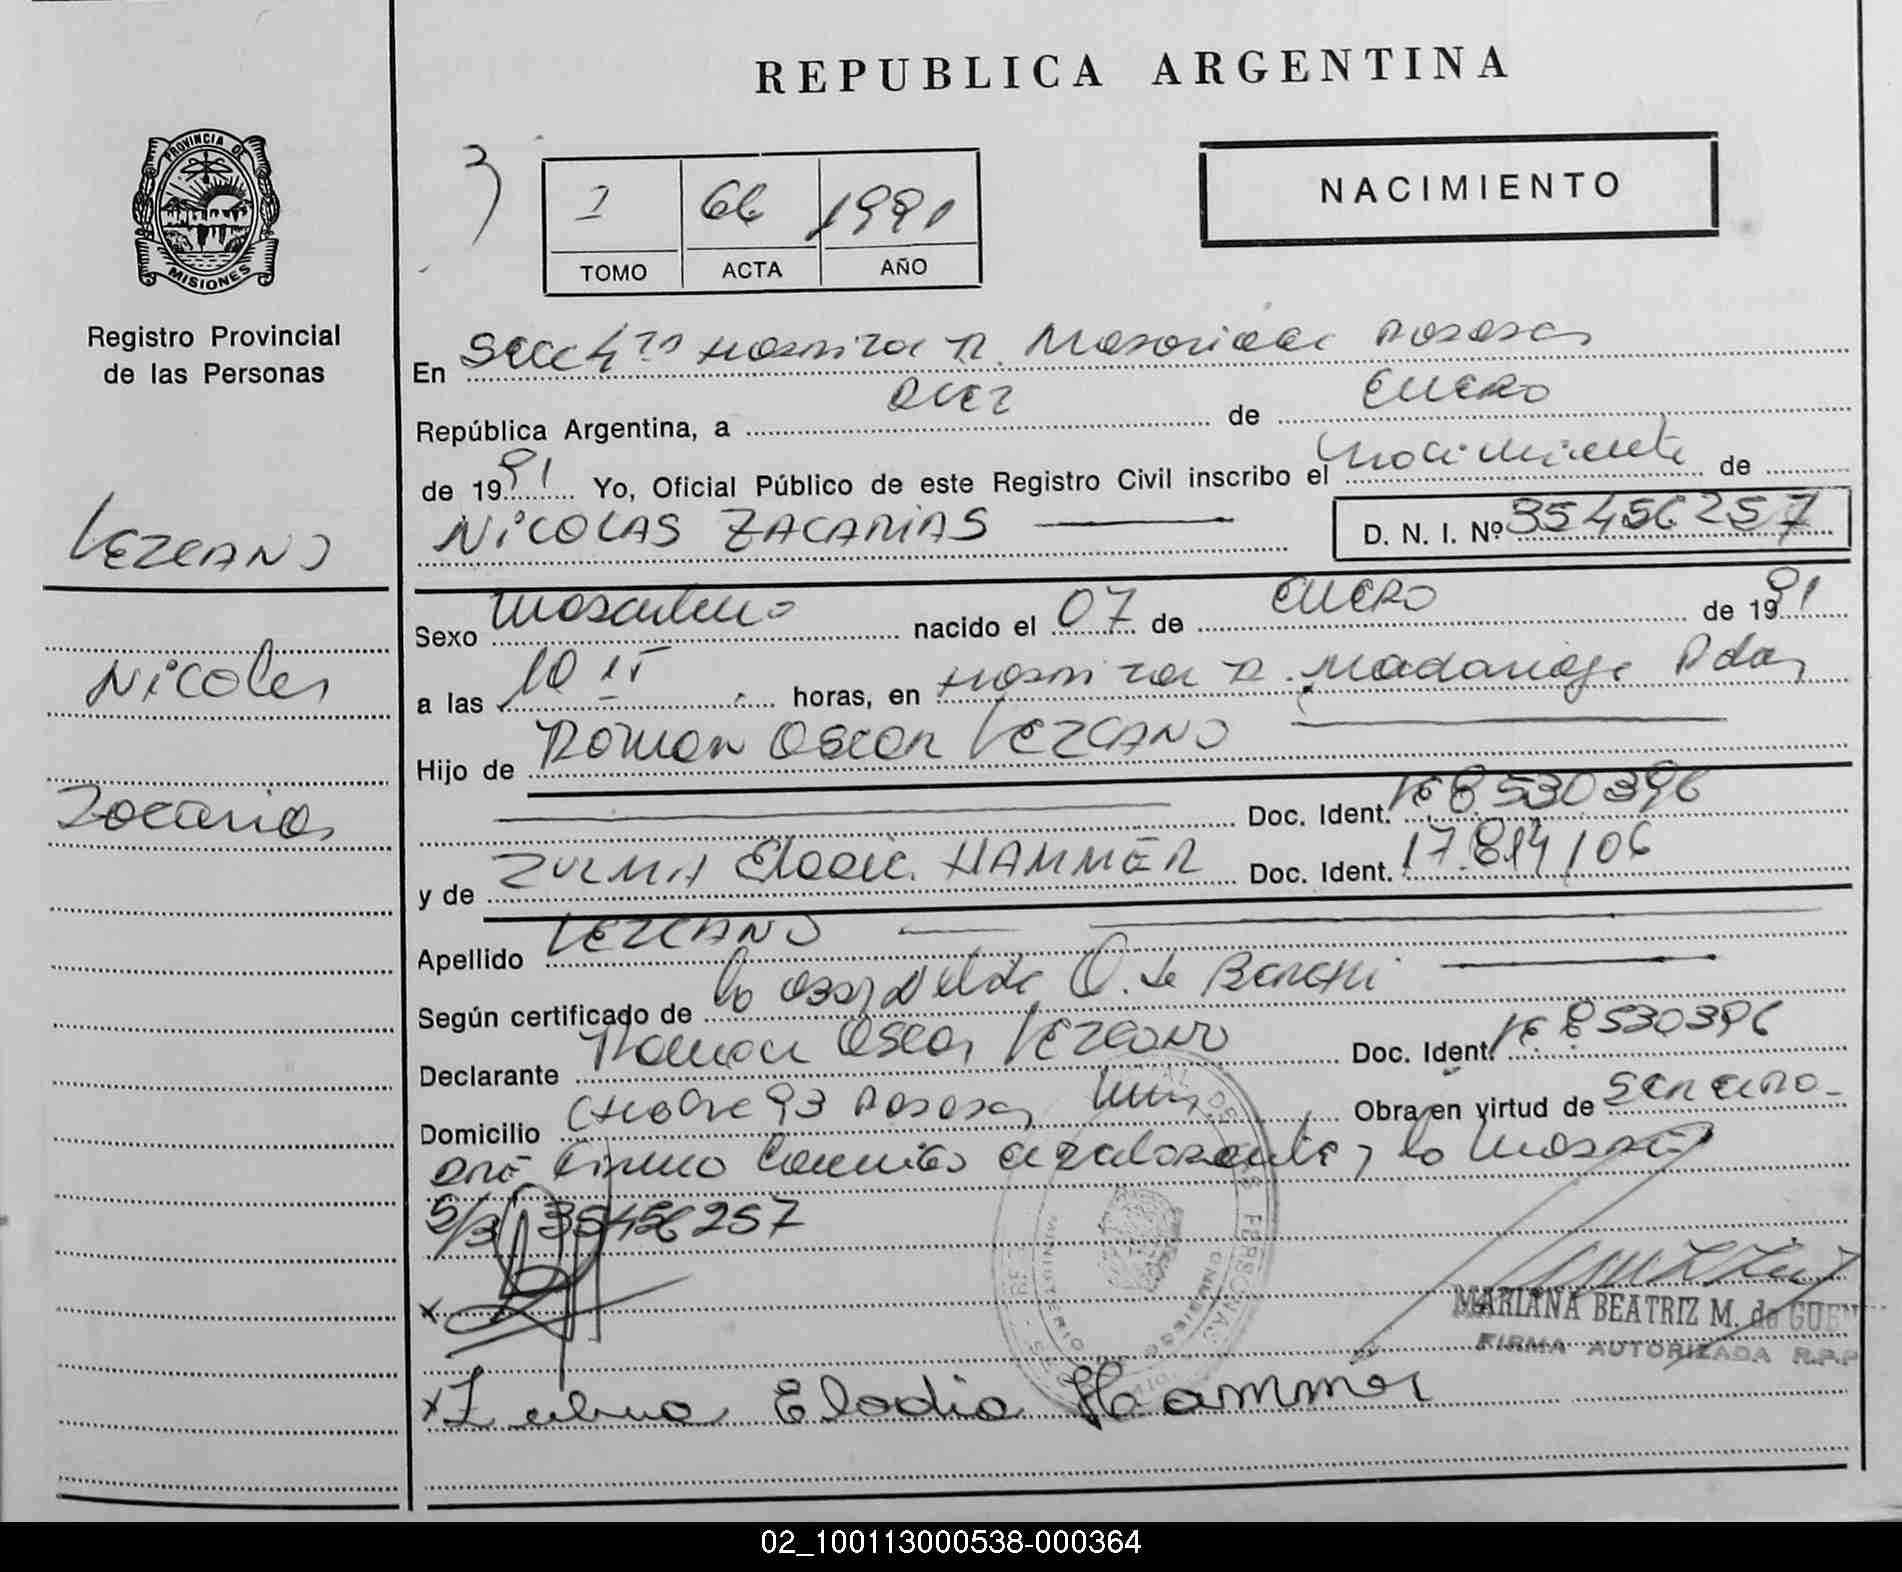 REPUBLICA ARGENTINA
PROVINCIA DE
MISIONES
Registro Provincial
de las Personas
1 66 1991
TOMO ACTA AÑO
NACIMIENTO
En Secc 4ta Hospital R. Madariaga Posadas
República Argentina, a DIEZ de ENERO
de 1991 Yo, Oficial Público de este Registro Civil inscribo el nacimiento de
NICOLAS ZACARIAS D. N. I. Nº 35456257
LEZCANO
Nicolas
Zacarias
Sexo masculino nacido el 07 de ENERO de 1991
a las 10 15 horas, en Hospital R. Madariaga Pdas
Hijo de Roman Oscar LEZCANO
Doc. Ident. 8530396
y de ZULMA Elodia HAMMER Doc. Ident. 17.814106
Apellido LEZCANO
Según certificado de la Q. de
Declarante Roman Oscar Lezcano Doc. Ident. 8530396
Domicilio 93 Posadas Mnes Obra en virtud de ser
firma la madre
S/3 35456257
MARIANA BEATRIZ M. de GUEN
FIRMA AUTORIZADA R.P.P
x Zulma Elodia Hammer
02_100113000538-000364